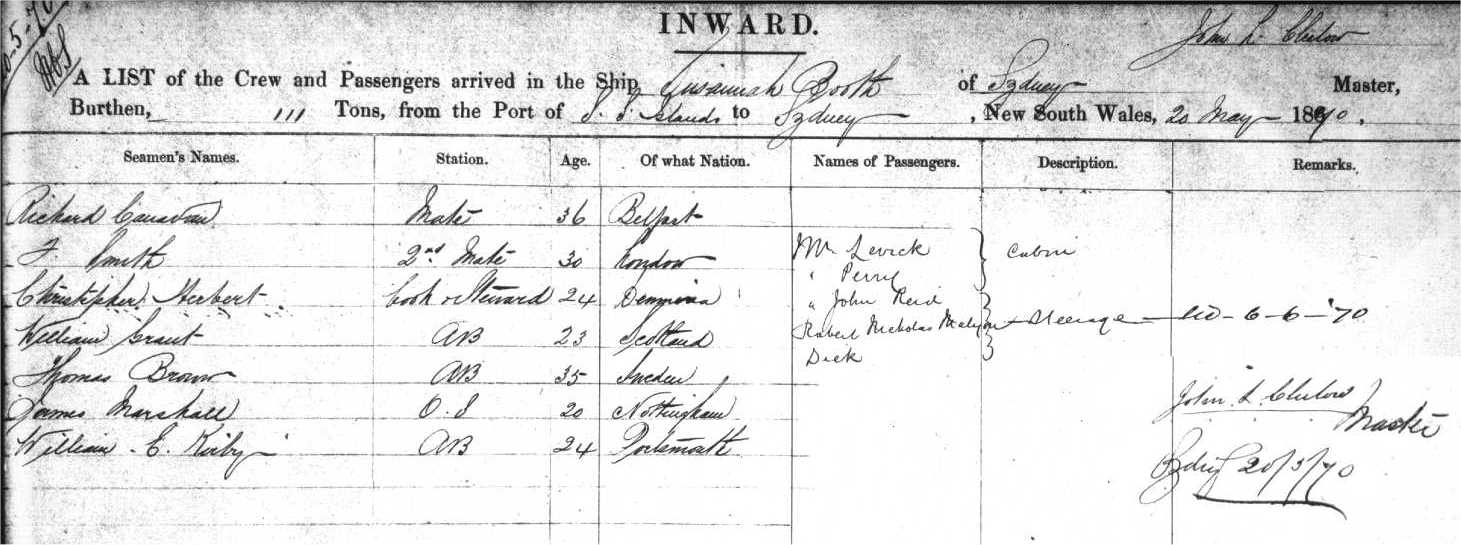 20-5-70
INWARD.
John L. Clulow
A LIST of the Crew and Passengers arrived in the Ship Susannah Booth of Sydney Master,
Burthen, 111 Tons, from the Port of S. S. Islands to Sydney, New South Wales, 20 May 1870,
Seamen's Names. Station. Age. Of what Nation. Names of Passengers. Description. Remarks.
Richard Canavan Mate 36 Belfast
F. Smith 2nd Mate 30 London Mr Levick Cabin
" Perry
Christopher Herbert Cook & Steward 24 " John Reid
William Grant AB 23 Scotland Robert Nicholas Steerage 6-6-'70
Dick
Thomas Brown AB 35 Sweden
James Marshall O.S 20 Nottingham John L. Clulow
Master
William E. Kirby AB 24 Portsmouth
20/5/70